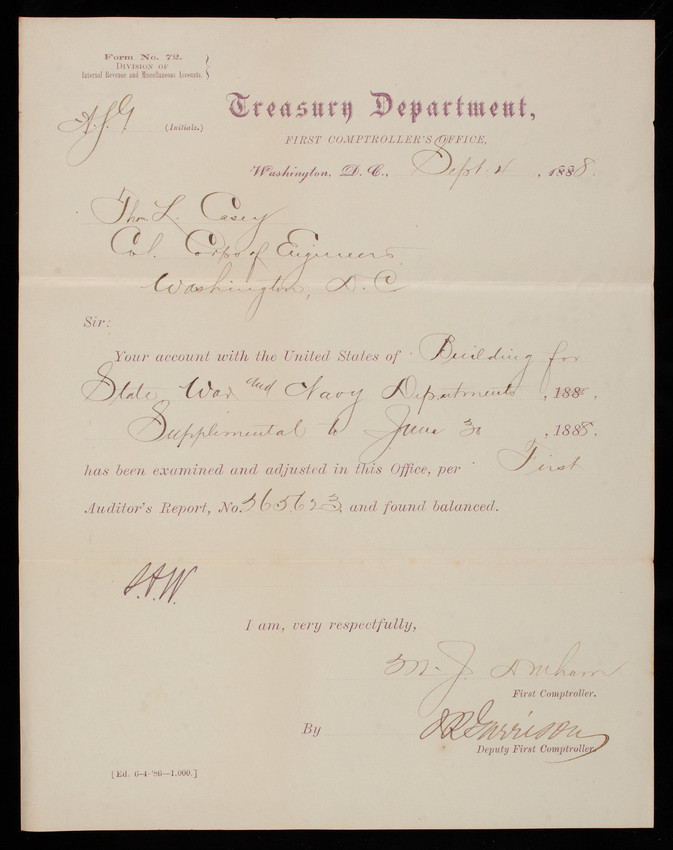 Form No. 72.
DIVISION OF
Internal Revenue and Miscellaneous Accounts.
(Initials.)
Treasury Department,
FIRST COMPTROLLER'S OFFICE,
Washington, D. C., Sept. 4, 1888.
Thos L. Casey
Col. Corps of Engineers
Washington, D. C
Sir:
Your account with the United States of Building for
State War and Navy Departments, 188 .
Supplimental to June 30, 1888,
has been examined and adjusted in this Office, per First
Auditor's Report, No. 365623, and found balanced.
I am, very respectfully,
M. J. Durham
First Comptroller.
By J R Garrison
Deputy First Comptroller.
[Ed. 6-4-'86—1,000.]